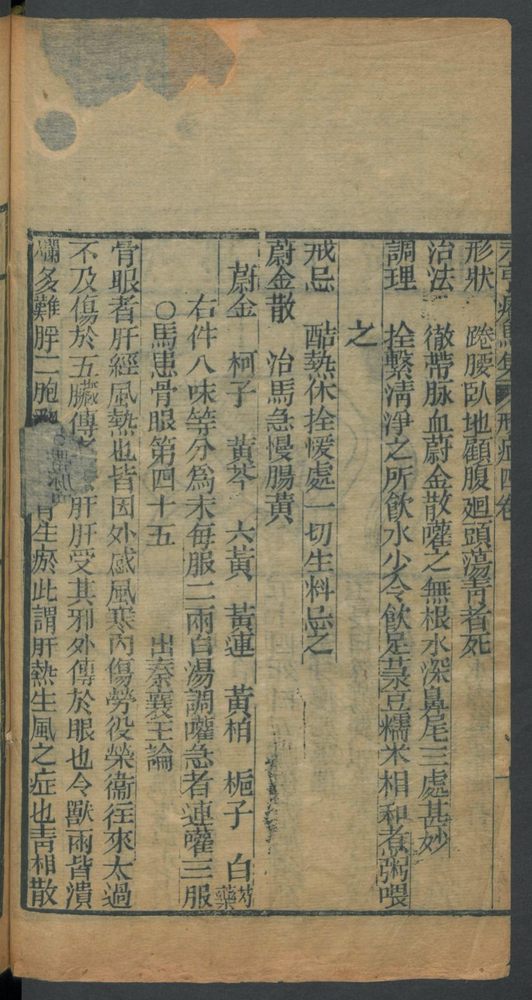 元亨療馬集 形症四卷
形狀 踡腰臥地顧腹廻頭蕩青者死
治法 徹帶脉血蔚金散嚾之無根水深鼻尾三處甚妙
調理 拴繫淸淨之所飮水少令飮足菉豆糯米相和煮粥喂
之
戒忌 酷熱休拴煖處一切生料忌之
蔚金散 治馬急慢腸黃
蔚金 柯子 黃芩 六黃 黃連 黃栢 梔子 白芍藥
右件八味等分爲末每服二兩白湯調嚾急者連嚾三服
○馬患骨眼第四十五 出秦襄王論
骨眼者肝經風熱也皆因外感風寒內傷勞役榮衞徃來太過
不及傷於五臟傳 肝肝受其邪外傳於眼也令獸兩皆潰
爛多難睜二胞 骨生瘀此謂肝熱生風之症也靑相散